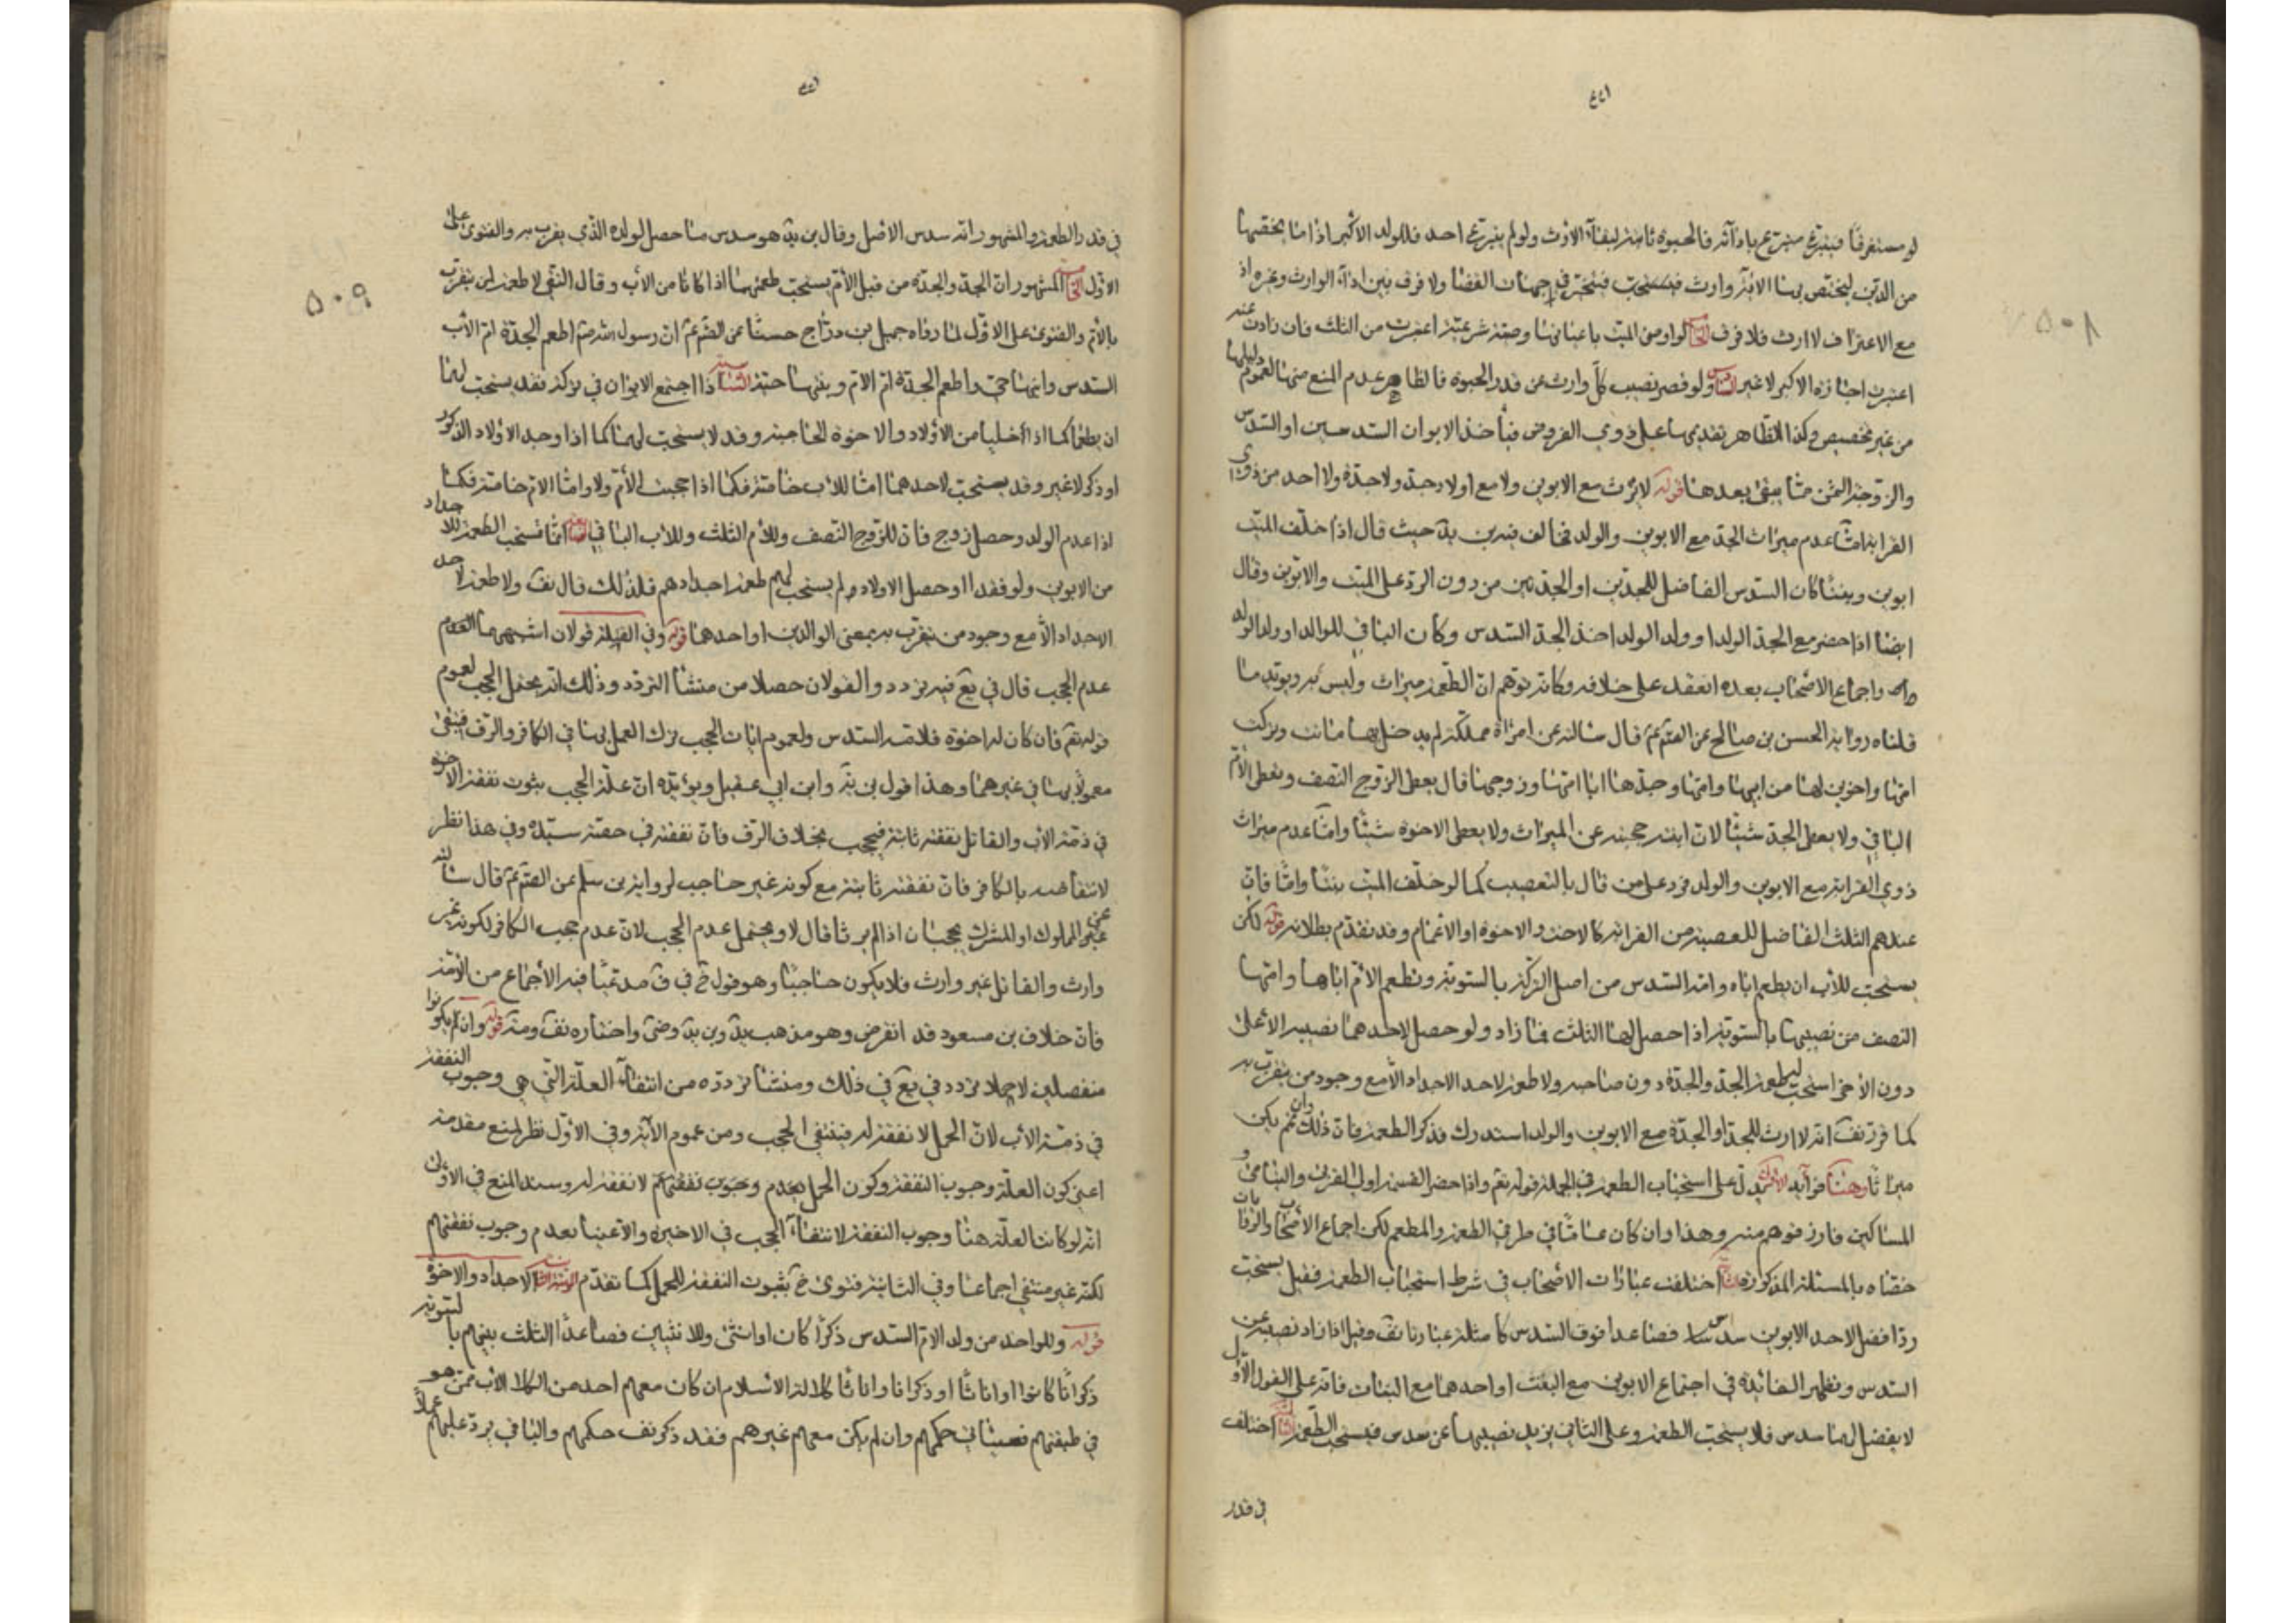 لو مستغرقا فتبرع متبرع باداء فالحبوة ثابتة لبقاء الارث ولو لم يتبرع احد فللولد الاكبر اذا ما يخصها
من الدين ليختص بها الا وارث في جهات القضا ولا فرق بين اداء الوارث وغيره اذ
مع الاعتراف لا ارث فلا فرق لو اوصى الميت باعيانها وصية شرعية اعتبرت من الثلث فان زادت عنه
اعتبرت اجازة الاكبر لا غير ولو قصر نصيب كل وارث عن قدر الحبوة فالظاهر عدم المنع منها لعموم دليلها
من غير تخصيص وكذا الظاهر تقديمها على ذوي الفروض فيأخذ الابوان السدسين او السدس
والزوجة الثمن مما يبقى بعدها قوله لا يرث مع الابوين ولا مع اولاد جد ولا جدة ولا احد من ذوي
القرابة اما عدم ميراث الجد مع الابوين والولد فخالف فيه بن يد حيث قال اذا خلف الميت
ابوين وبنتا كان السدس الفاضل للجدين او الجدتين من دون الرد على البنت والابوين وقال
ايضا اذا حضر مع الجد الولد او ولد الولد اخذ الجد السدس وكان الباقي للوالد او ولد الولد
واجماع الاصحاب بعده انعقد على خلافه وكانه توهم ان الطعمة ميراث وليس به ويؤيد ما
قلناه رواية الحسن بن صالح عن الصم ع قال سالته عن امراة مملكة لم يدخل بها ماتت وتركت
امها واخوين لها من ابيها وامها وجدها ابا امها وزوجها قال يعطى الزوج النصف وتعطى الام
الباقي ولا يعطى الجد شيئا لان ابنته حجبته عن الميراث ولا يعطى الاخوة شيئا واما عدم ميراث
ذوي القرابة مع الابوين والولد فرد على من قال بالتعصيب كما لو خلف الميت بنتا واما فان
عندهم الثلث الفاضل للعصبة من القرابة كالاخت والاخوة او الاعمام وقد تقدم بطلانه قوله لكن
يستحب للاب ان يطعم اباه وامه السدس من اصل التركة بالسوية وتطعم الام اباها وامها
النصف من نصيبها بالسوية اذا حصل لها الثلث فما زاد ولو حصل لاحدهما نصيبه الاعلى
دون الاخر استحب له طعمة الجد والجدة دون صاحبه ولا طعمة لاحد الاجداد الا مع وجود من يتقرب به
كما قرر نف انه لا ارث للجد او الجدة مع الابوين والولد استدرك فذكر الطعمة فان ذلك وان لم يكن
ميراثا وهنا فوائد الاولى يدل على استحباب الطعمة في الجملة قوله تع واذا حضر القسمة اولوا القربى واليتامى و
المساكين فارزقوهم منه وهذا وان كان عاما في طرفي الطعمة والمطعم لكن اجماع الاصحاب والروايات
خصاه بالمسئلة المذكورة اختلفت عبارات الاصحاب في شرط استحباب الطعمة فقيل يستحب
اذا فضل لاحد الابوين سدس فصاعدا فوق السدس كما مثلته عبارة نف وقيل اذا زاد نصيبه عن
السدس وتظهر الفائدة في اجتماع الابوين مع البنت او احدهما مع البنات فانه على القول الاول
لا يفضل لها سدس فلا يستحب الطعمة وعلى الثاني يزيد نصيبها عن سدس فيستحب الطعمة اختلف
في قدر
في قدر الطعمة والمشهور انه سدس الاصل وقال بن يد هو سدس ما حصل لولده الذي يتقرب به والفتوى على
الاول المشهور ان الجد والجدة من قبل الام يستحب طعمتهما اذا كانا من الاب وقال التقي لا طعمة لمن يتقرب
بالام والفتوى على الاول لما رواه جميل بن دراج حسنا عن الصم ع ان رسول الله ص اطعم الجدة ام الاب
السدس وابنها حي واطعم الجدة ام الام وبنتها حية اذا اجتمع الابوان في تركة فقد يستحب لهما
ان يطعما كما اذا اخليا من الاولاد والاخوة الحاجبة وقد لا يستحب لهما كما اذا وجد الاولاد الذكور
او ذكر لا غير وقد يستحب لاحدهما اما للاب خاصة فكما اذا حجبت الام ولا واما الام خاصة فكما
اذا عدم الولد وحصل زوج فان للزوج النصف وللام الثلث وللاب الباقي انما تستحب الطعمة للاجداد
من الابوين ولو فقدا او حصل الاولاد لم يستحب لهم طعمة اجدادهم فلذلك قال نف ولا طعمة لاحد
الاجداد الا مع وجود من يتقرب به يعني الوالدين او احدهما قوله وفي القتلة قولان اشبههما
عدم الحجب قال في يع فيه تردد والقولان حصلا من منشا التردد وذلك انه يحتمل الحجب لعموم
قوله تع فان كان له اخوة فلامه السدس ولعموم ايات الحجب ترك العمل بها في الكافر والرق فيبقى
معمولا بها في غيرهما وهذا قول بن يد وابن ابي عقيل ويؤيده ان علة الحجب ثبوت نفقة الاخوة
في ذمة الاب والقاتل نفقته ثابتة فيحجب بخلاف الرق فان نفقته في حصة سيده وفي هذا نظر
لانتقاضه بالكافر فان نفقته ثابتة مع كونه غير حاجب لرواية بن مسلم عن الصم ع قال سالته
عن المملوك او المشرك يحجبان اذا لم يرثا قال لا ويحتمل عدم الحجب لان عدم حجب الكافر لكونه غير
وارث والقاتل غير وارث فلا يكون حاجبا وهو قول خ في ف مدعيا فيه الاجماع من الامة
فان خلاف بن مسعود قد انقرض وهو مذهب يد وبن يد وضى واختاره نف ومنه قوله وان لم يكونوا
منفصلين لا حملا تردد في يع في ذلك ومنشا تردده من انتفاء العلة التي هي وجوب النفقة
في ذمة الاب لان الحمل لا نفقة له فينتفي الحجب ومن عموم الاية وفي الاول نظر لمنع مقدمته
اعني كون العلة وجوب النفقة وكون الحمل يعدم وجوب نفقتهم لا نفقة له وسند المنع في الاولى
انه لو كانت العلة هنا وجوب النفقة لانتفاء الحجب في الاخيرة والاغنيا بعدم وجوب نفقتهم
لكنه غير منتفي اجماعا وفي الثانية فتوى خ بثبوت النفقة للحمل كما تقدم المرتبة الثانية الاجداد والاخوة
قوله وللواحد من ولد الام السدس ذكرا كان او انثى وللاثنين فصاعدا الثلث بينهم بالسوية
ذكرانا كانوا او اناثا او ذكرانا واناثا كلالة الام ان كان معهم احد من الكلالة الاب ممن هو
في طبقتهم فسياتي حكمهم وان لم يكن معهم غيرهم فقد ذكر نف حكمهم والباقي يرد عليهم عملا